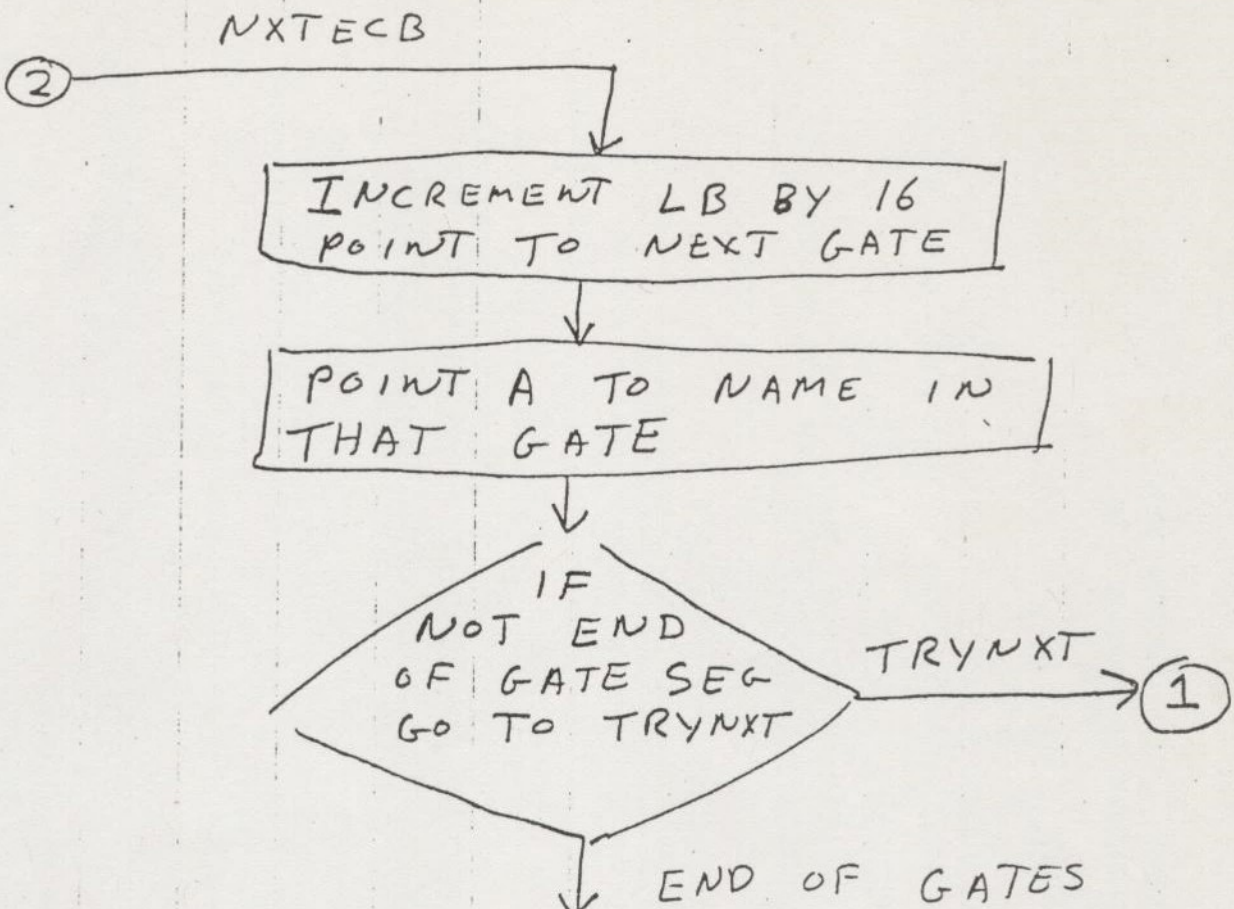 NXTECB
2
INCREMENT LB BY 16
POINT TO NEXT GATE
POINT A TO NAME IN
THAT GATE
IF
NOT END
OF GATE SEG
GO TO TRYNXT
TRYNXT
1
END OF GATES